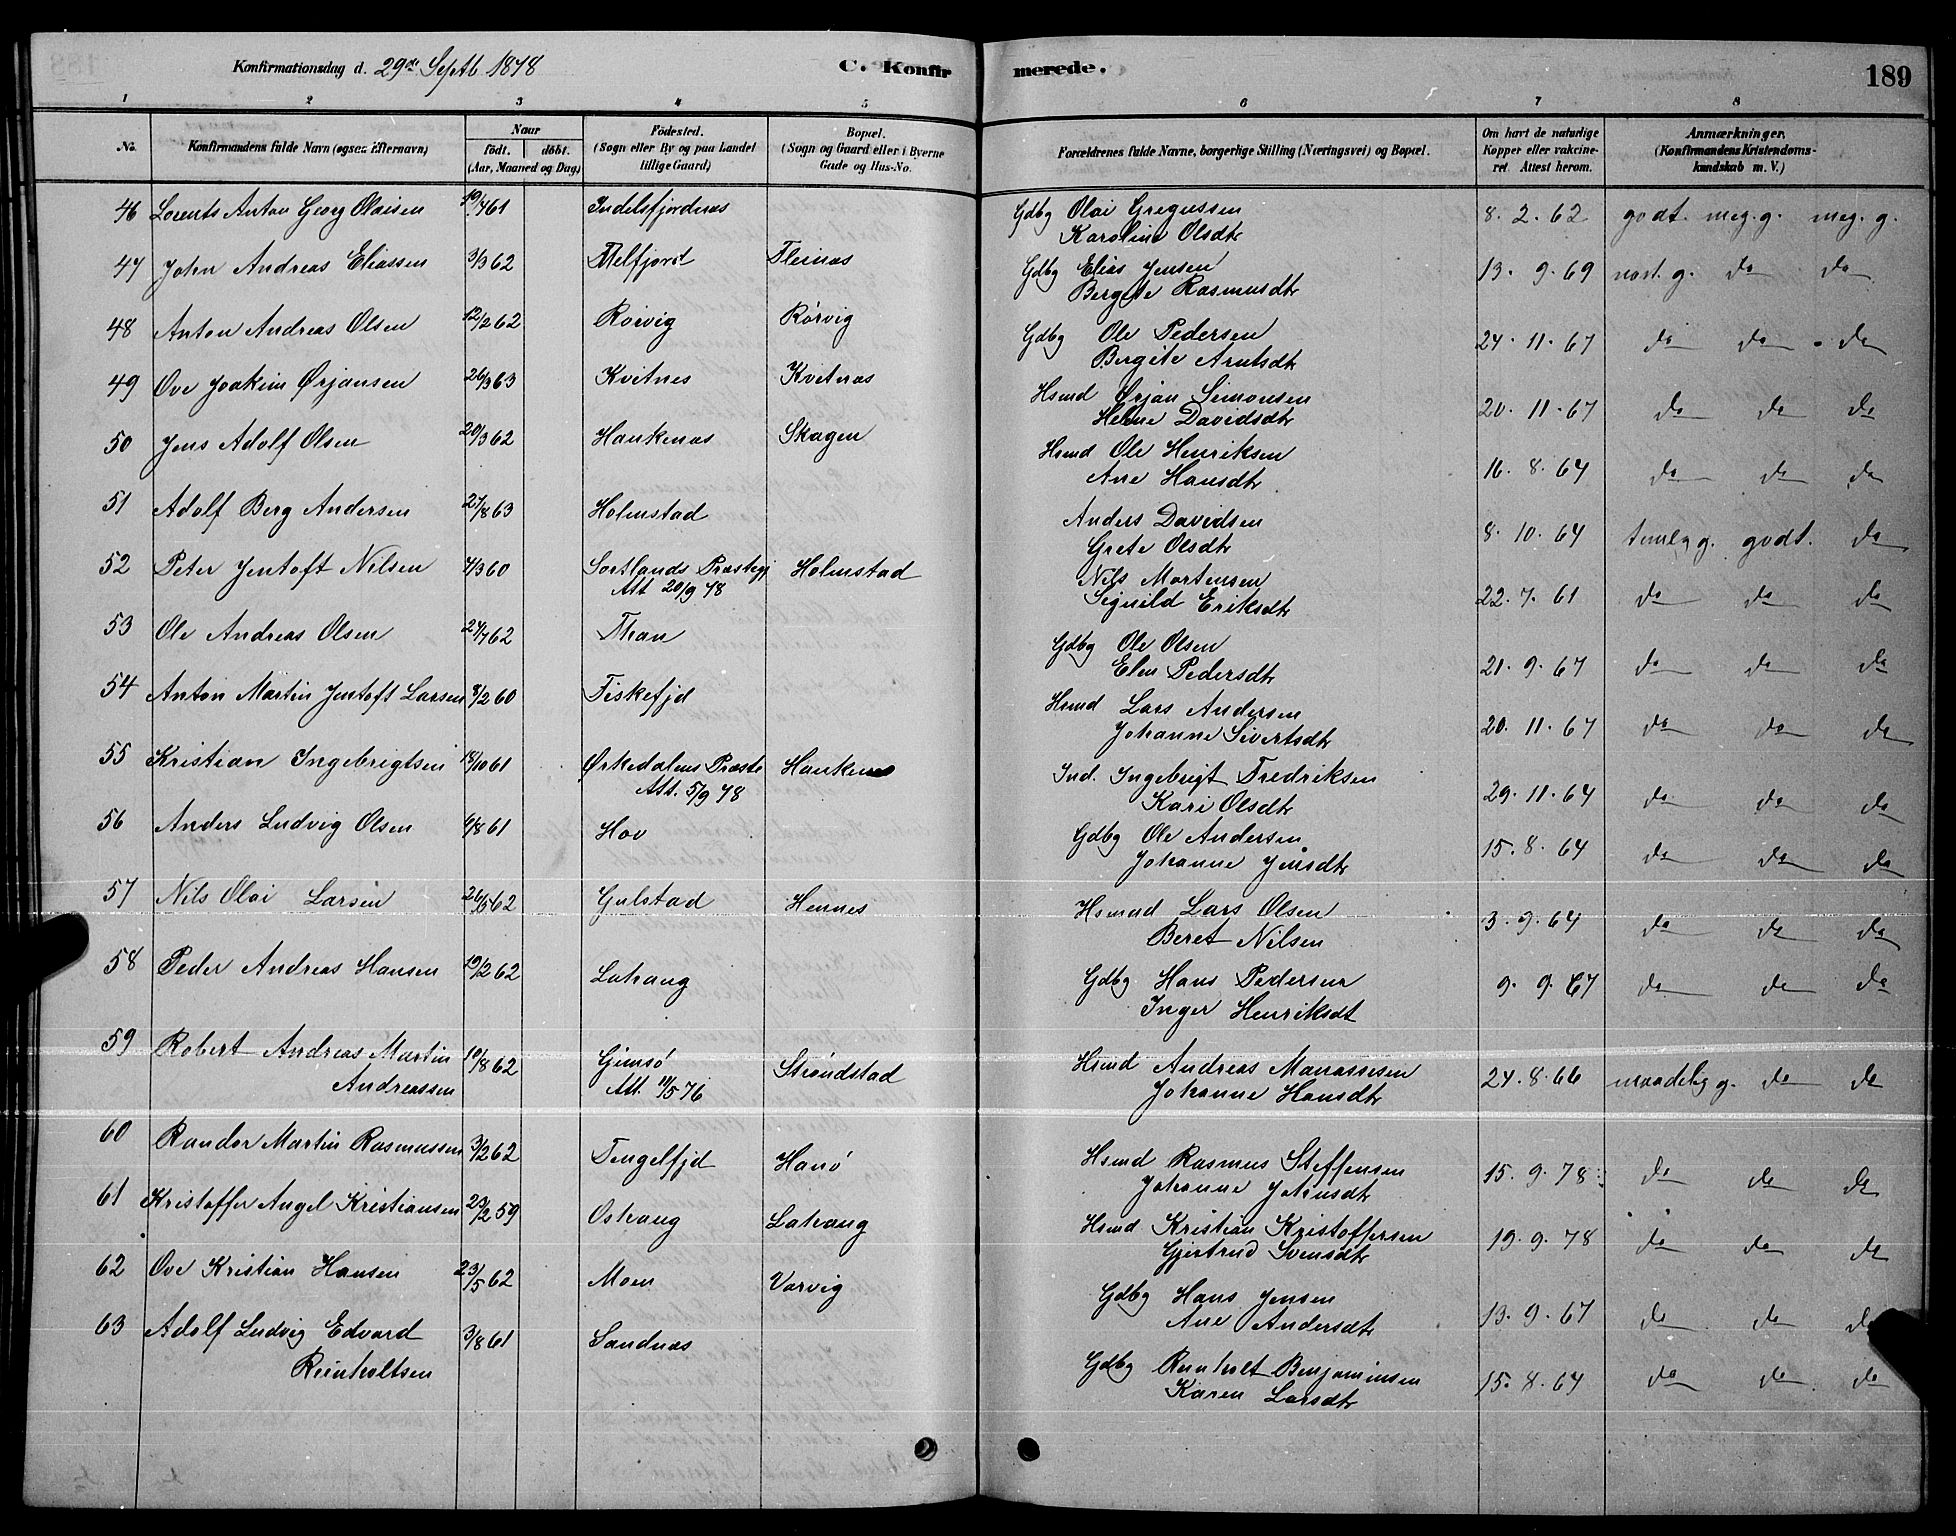 Konfirmationsdag d. 29de Septb 1878
C. Konfirmerede.
189
1 2 3 4 5 6 7 8
No.
Konfirmandens fulde Navn (ogsaa Efternavn)
Naar
født. døbt.
(Aar, Maaned og Dag)
Fødested.
(Sogn eller By og paa Landet
tillige Gaard)
Bopæl.
(Sogn og Gaard eller i Byerne
Gade og Hus-No.
Forældrenes fulde Navne, borgerlige Stilling (Næringsvei) og Bopæl.
Om havt de naturlige
Kopper eller vakcine-
ret. Attest herom.
Anmærkninger.
(Konfirmandens Kristendoms-
kundskab m. V.)
46 Lorents Anton Georg Olaisen 19/4 61 Indelsfjordnæs Gdbg Olai Gregussen 8. 2. 62 godt. meg. g. meg. g.
Karoline Olsdtr
47 John Andreas Eliassen 3/3 62 Melfjord Fleinæs Gdbg Elias Jensen 13. 9. 69 næst. g. do do
Bergite Rasmusdtr
48 Anton Andreas Olsen 12/2 62 Rørvig Rørvig Gdbg Ole Pedersen 24. 11. 67 do do do
Bergite Arntsdtr
49 Ove Joakim Ørjansen 26/3 63 Kvitnes Kvitnæs Hsmd Ørjan Simonsen 20. 11. 67 do do do
Helene Davidsdtr
50 Jens Adolf Olsen 20/3 62 Haukenæs Skagen Hsmd Ole Henriksen 16. 8. 64 do do do
Ane Hansdtr
51 Adolf Berg Andersen 27/8 63 Holmstad Anders Davidsen 8. 10. 64 temlg g. godt. do
Grete Olsdtr
52 Peter Jentoft Nilsen 4/3 60 Sortlands Præstegj Holmstad Nils Mortensen 22. 7. 61 do do do
Att 20/9 78 Signild Eriksdtr
53 Ole Andreas Olsen 27/7 62 Than Gdbg Ole Olsen 21. 9. 67 do do do
Elen Pedersdtr
54 Anton Martin Jentoft Larsen 8/2 60 Fiskefjd Hsmd Lars Andersen 20. 11. 67 do do do
Johanne Sivertsdtr
55 Kristian Ingebrigtsen 18/10 61 Ørkedalens Præste Haukenæs Ind. Ingebrigt Fredriksen 29. 11. 64 do do do
Att. 5/9 78 Kari Olsdtr
56 Anders Ludvig Olsen 4/8 61 Hov Gdbg Ole Andersen 15. 8. 64 do do do
Johanne Jensdtr
57 Nils Olai Larsen 26/5 62 Gulstad Hennes Hsmand Lars Olsen 3. 9. 64 do do do
Beret Nilsen
58 Peder Andreas Hansen 19/2 62 Lahaug Gdbg Hans Pedersen 9. 9. 67 do do do
Inger Henriksdt
59 Robert Andreas Martin 19/8 62 Gimsø Strøndstad Hsmd Andreas Manassesen 24. 8. 66 maadelig g. do do
Andreassen Att. 11/5 76 Johanne Hansdtr
60 Randor Martin Rasmussen 3/2 62 Tengelfjd Hanø Hsmd Rasmus Steffensen 15. 9. 78 do do do
Johanne Johnsdtr
61 Kristoffer Angel Kristiansen 23/2 59 Oshaug Lahaug Hsmd Kristian Kristoffersen 19. 9. 78 do do do
Gjertrud Svensdtr
62 Ove Kristian Hansen 23/5 62 Moen Varvig Gdbg Hans Jensen 13. 9. 67 do do do
Ane Andersdtr
63 Adolf Ludvig Edvard 3/8 61 Sandnæs Gdbg Reinholt Benjaminsen 15. 8. 64 do do do
Reinholtsen Karen Larsdtr